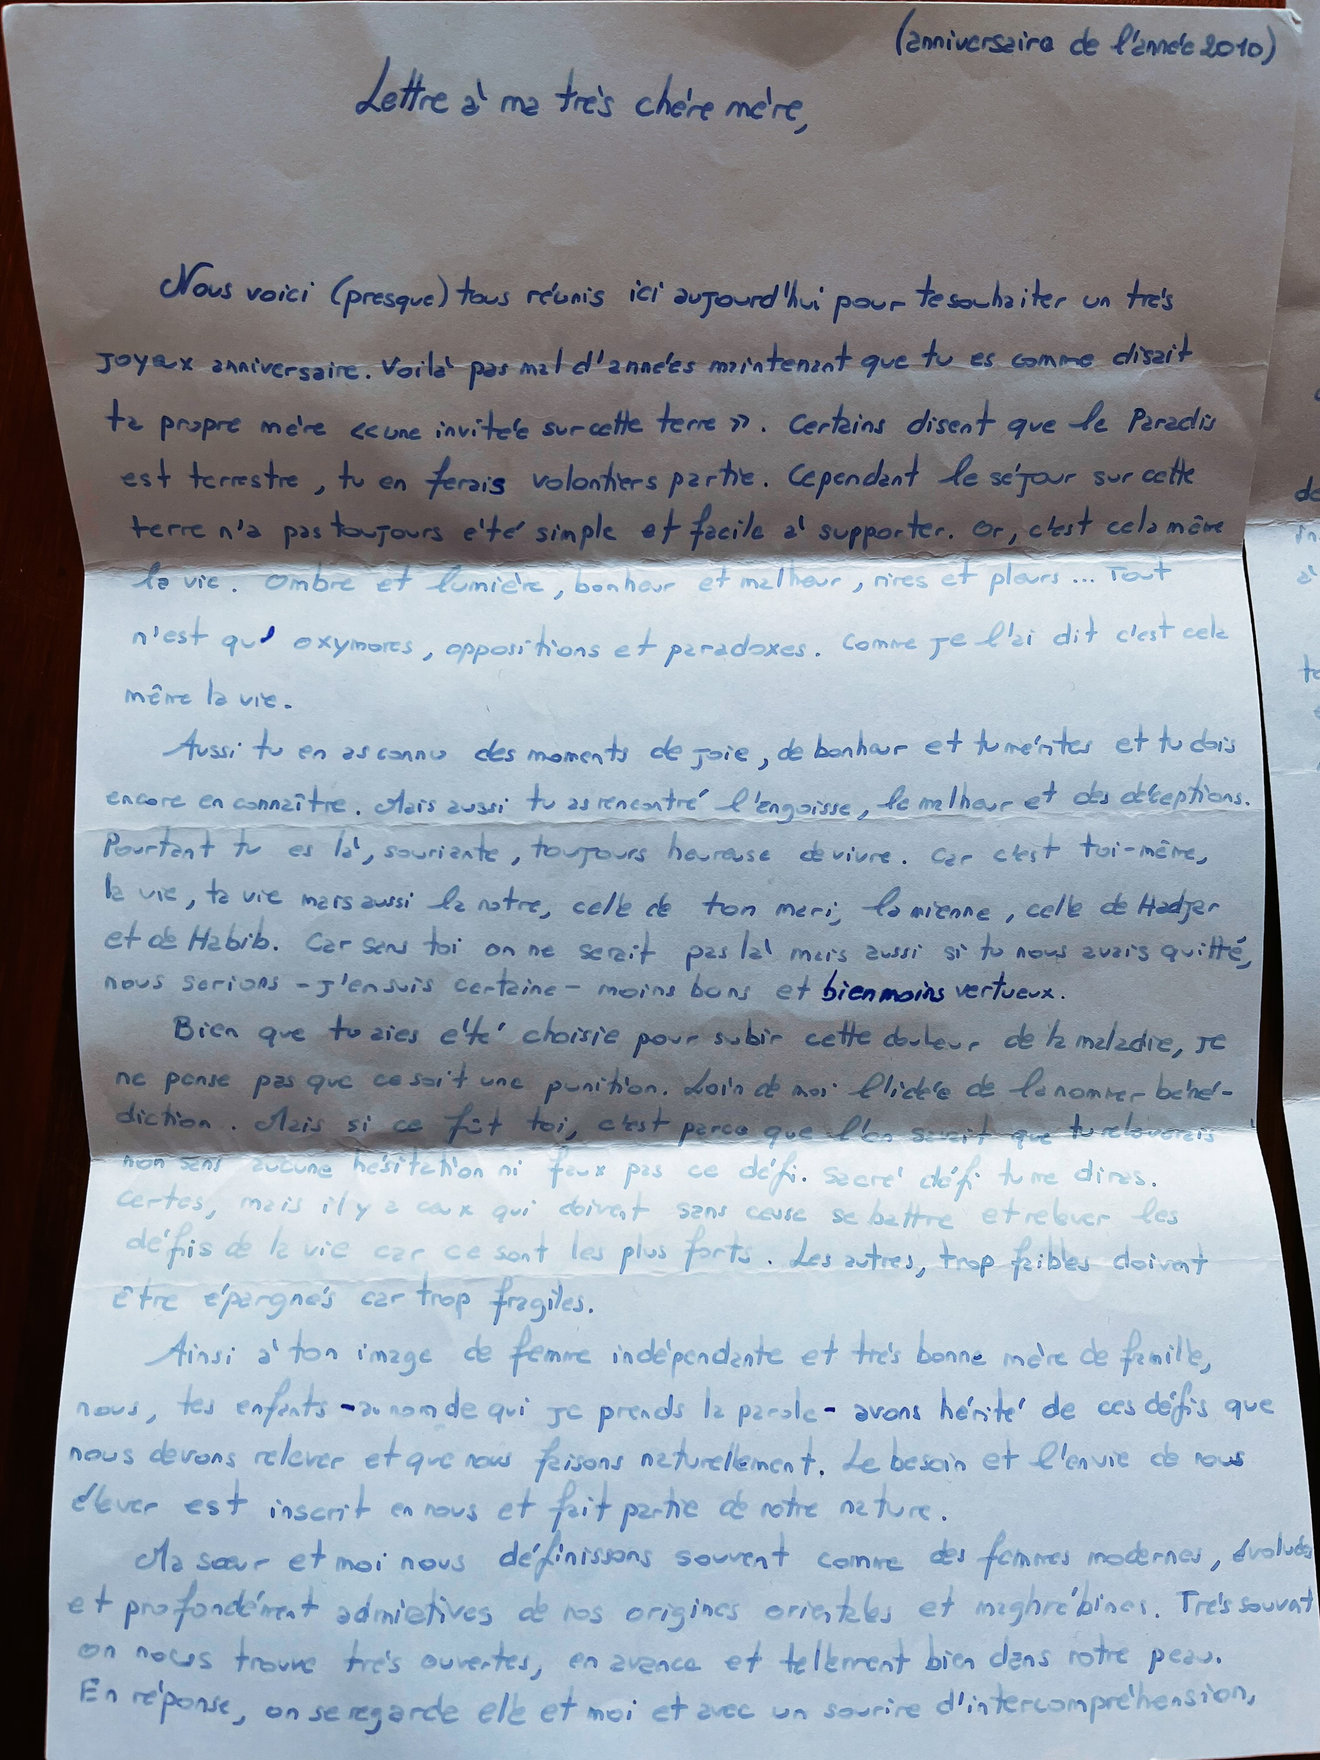 (anniversaire de l'année 2010)
Lettre à ma très chère mère,
Nous voici (presque) tous réunis ici aujourd'hui pour te souhaiter un très
joyeux anniversaire. Voilà pas mal d'années maintenant que tu es comme disait
ta propre mère << une invitée sur cette terre >>. Certains disent que le Paradis
est terrestre, tu en ferais volontiers partie. Cependant le séjour sur cette
terre n'a pas toujours été simple et facile à supporter. Or, c'est cela même
la vie. Ombre et lumière, bonheur et malheur, rires et pleurs... Tout
n'est qu' oxymores, oppositions et paradoxes. Comme je l'ai dit c'est cela
même la vie.
Aussi tu en as connu des moments de joie, de bonheur et tu mérites et tu dois
encore en connaître. Mais aussi tu as rencontré l'angoisse, le malheur et des déceptions.
Pourtant tu es là, souriante, toujours heureuse de vivre. Car c'est toi-même,
la vie, ta vie mais aussi la notre, celle de ton mari, la mienne, celle de Hadjar
et de Habib. Car sans toi on ne serait pas là mais aussi si tu nous avais quitté,
nous serions - j'en suis certaine - moins bons et bien moins vertueux.
Bien que tu aies été choisie pour subir cette douleur de la maladie, je
ne pense pas que ce soit une punition. Loin de moi l'idée de la nommer béné-
diction. Mais si ce fût toi, c'est parce que l'on savait que tu relèverais
non sans aucune hésitation ni faux pas ce défi. Sacré défi tu me diras.
Certes, mais il y a ceux qui doivent sans cesse se battre et relever les
défis de la vie car ce sont les plus forts. Les autres, trop faibles doivent
être épargnés car trop fragiles.
Ainsi à ton image de femme indépendante et très bonne mère de famille,
nous, tes enfants - au nom de qui je prends la parole - avons hérité de ces défis que
nous devons relever et que nous faisons naturellement. Le besoin et l'envie de nous
élever est inscrit en nous et fait partie de notre nature.
Ma sœur et moi nous définissons souvent comme des femmes modernes, évoluées
et profondément admiratives de nos origines orientales et maghrébines. Très souvent
on nous trouve très ouvertes, en avance et tellement bien dans notre peau.
En réponse, on se regarde elle et moi et avec un sourire d'intercompréhension,